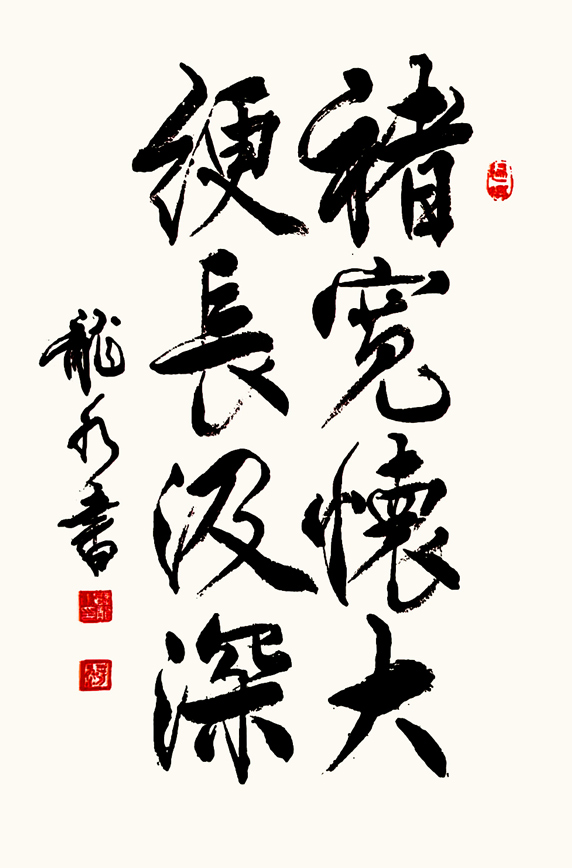 褚寬懷大
綆長汲深
龍水書